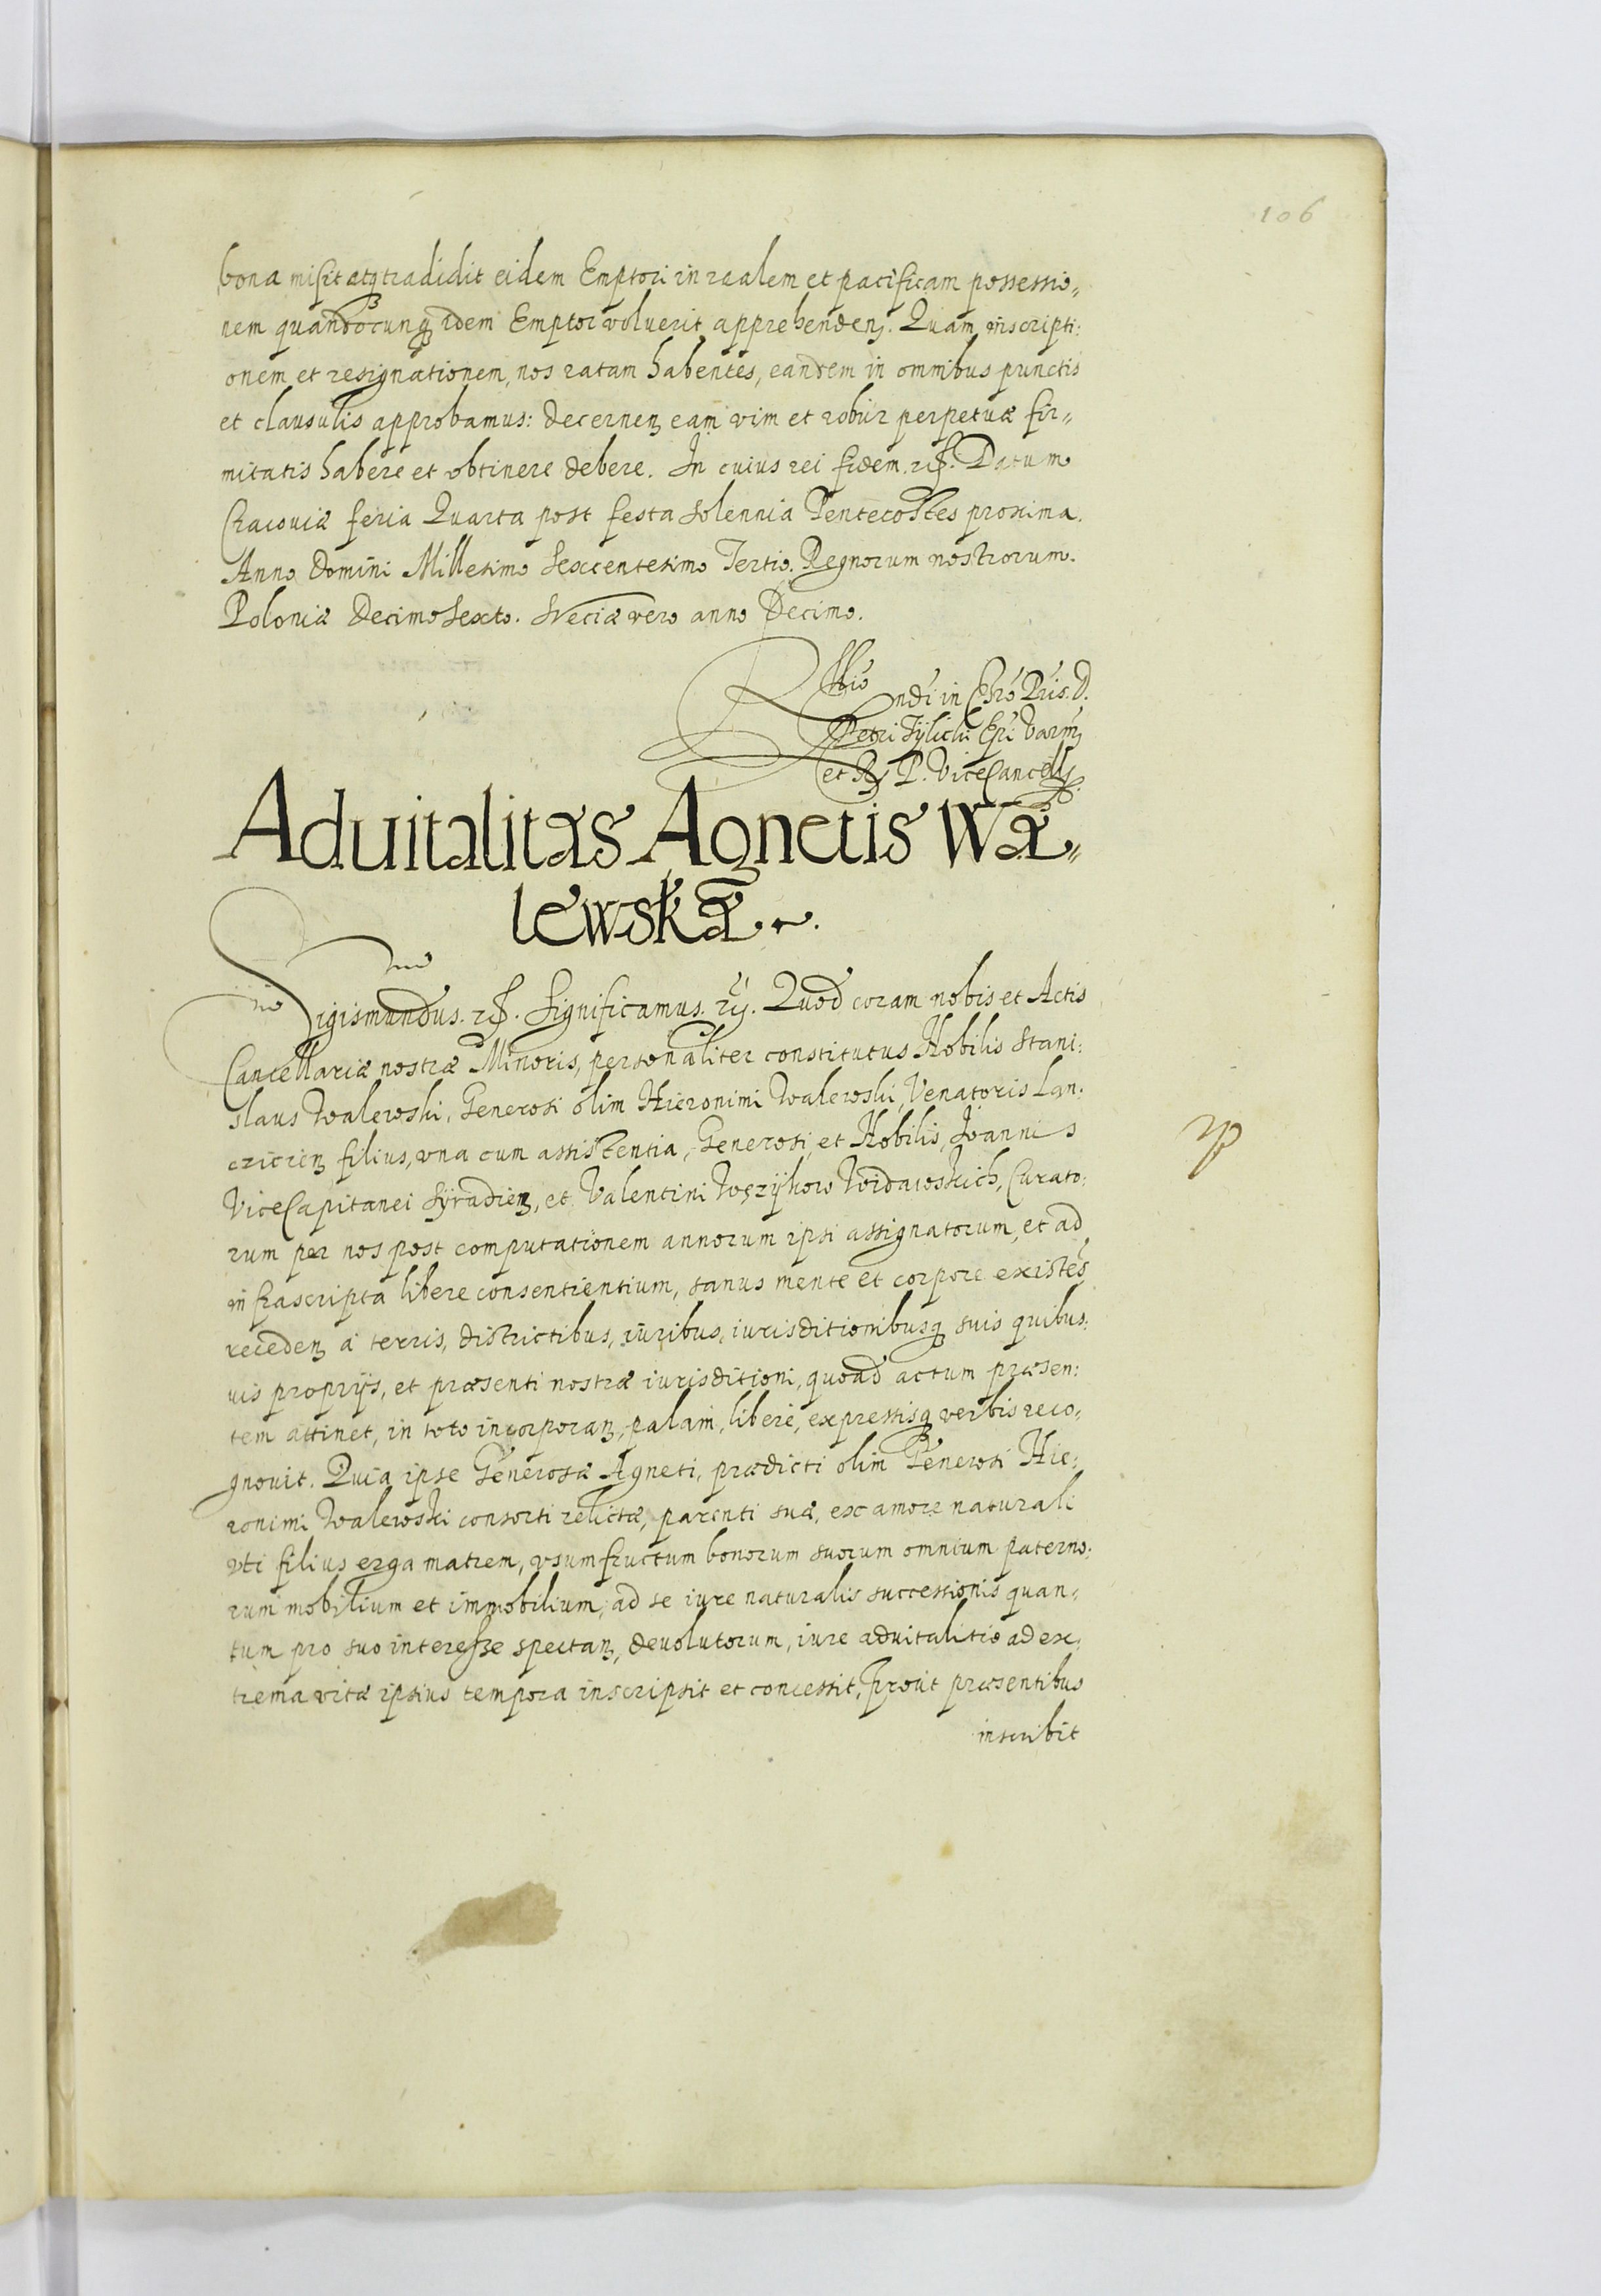 106
bona misit atq tradidit eidem Emptori in raalem et pacificam possessio„
nem quandocunq idem Emptor voluerit apprehendenȝ. Quam inscripti:
onem et resignationem, nos ratam habentes, eandem in omnibus punctis
et clausulis approbamus: decernenȝ eam vim et robur perpetuæ fir„
mitatis habere et obtinere debere. In cuius rei fidem. Datum
Cracoviæ feria Quarta post festa solennia Pentecostes proxima.
Anno Domini Millesimo Sexcentesimo Tertio. Regnorum nostrorum.
Poloniæ Decimo Sexto. Sveciæ vero anno Decimo.
Rłtio
ndi in Chro Pris. D.
Petri Tÿlicki Epi Varm
et R. P. ViceCancelly
Aduitalitas Agnetis Wa„
lewskæ.
Sigismundus. Significamus. Quod coram nobis et Actis
Cancellariæ nostræ Minoris, personaliter constitutus Nobilis Stani:
slaus Walewski, Generosi olim Hieronimi Walewski, Venatoris Lan:
cicienȝ filius, vna cum assistentia, Generosi, et Nobilis, Joannis
ViceCapitanei Sÿradienȝ, et Valentini Wężÿkow Widawskich, Curato:
rum per nos post computationem annorum ipsi assignatorum, et ad
infrascripta libere consentientium, sanus mente et corpore existēs
recedenȝ a terris, districtibus, iuribus, iurisditionibusq suis quibus:
uis proprijs, et præsenti nostræ iurisditioni, quoad actum præsen:
tem attinet, in toto incorporanȝ, palam, libere, expressisq verbis reco:
gnovit. Quia ipse Generosæ Agneti, prædicti olim Generosi Hie:
ronimi Walewski consorti relictæ, parenti suæ, ex amore naturali
vti filius erga matrem, vsumfructum bonorum suorum omnium paterno:
rum mobilium et immobilium, ad se iure naturalis successionis quan„
tum pro suo interesse spectanȝ, deuolutorum, iure aduitalitio ad ex:
trema vitæ ipsius tempora inscripsit et concessit, prout præsentibus
inscribit